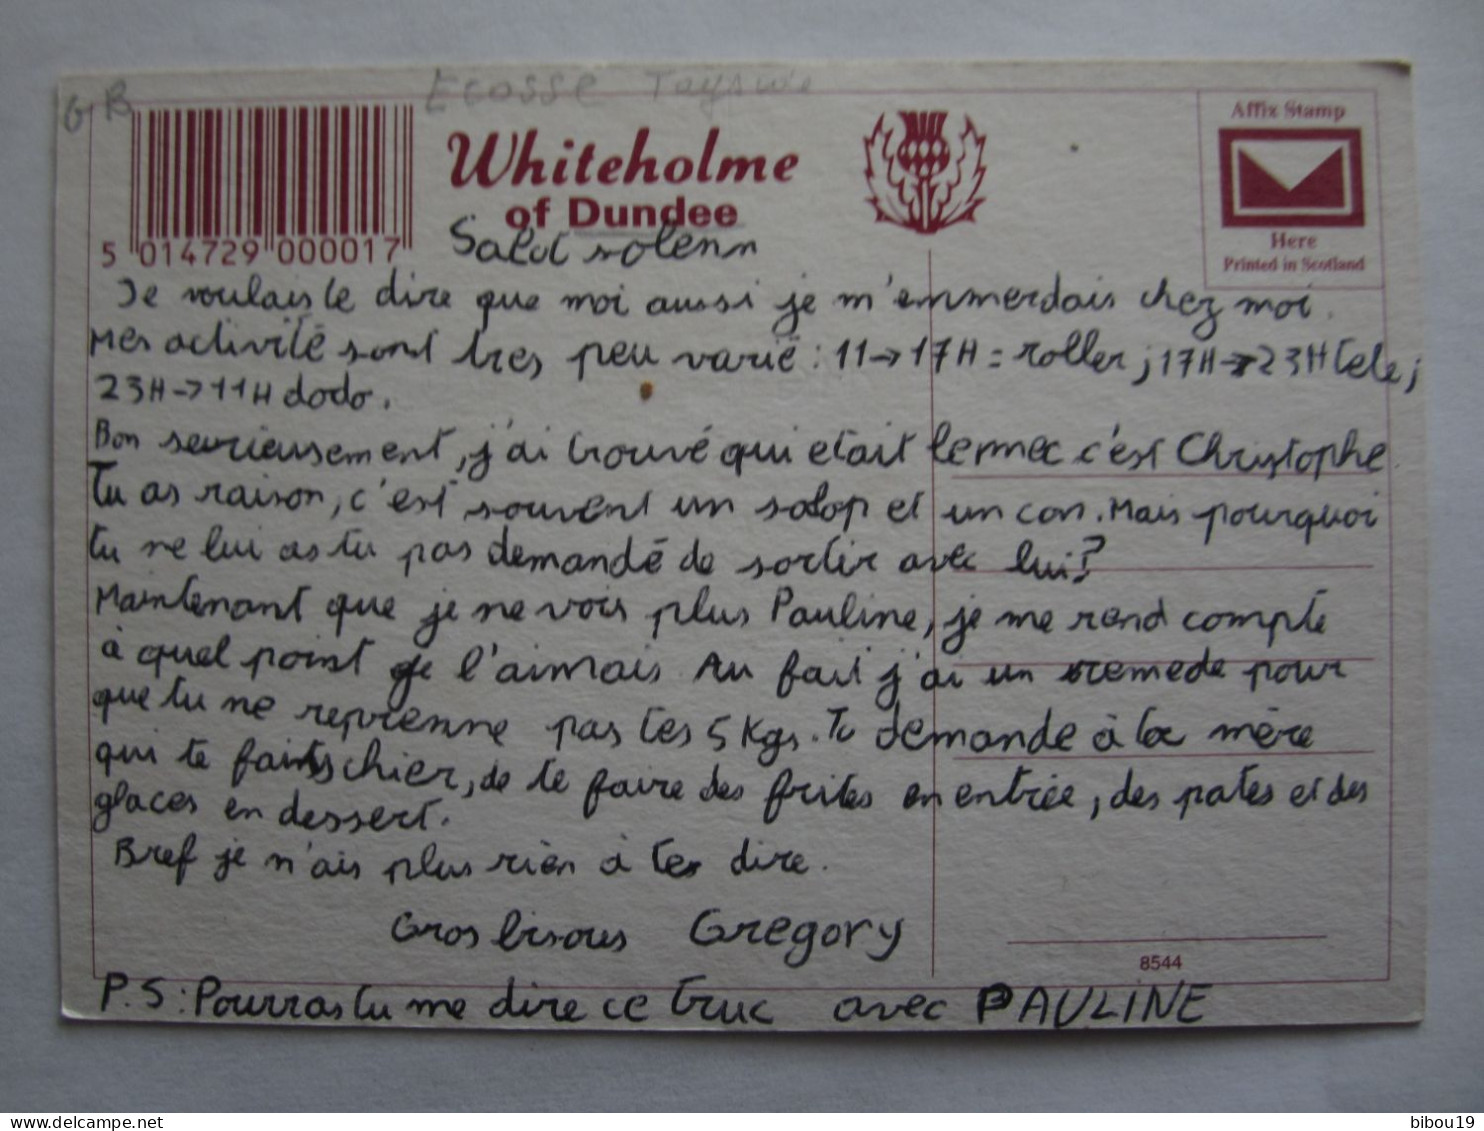 GB
Ecosse
Whiteholme
of Dundee
Affix Stamp
Here
Printed in Scotland
5 014729 000017
Salut solenn
Je voulais te dire que moi aussi je m'emmerdais chez moi.
Mes activité sont tres peu varié : 11→17H = roller ; 17H→23H tele ;
23H→11H dodo.
Bon seurieusement, j'ai trouvé qui etait le mec c'est Christophe.
Tu as raison, c'est souvent un salop et un con. Mais pourquoi
tu ne lui as tu pas demandé de sortir avec lui ?
Maintenant que je ne vois plus Pauline, je me rend compte
à quel point je l'aimais. Au fait j'ai un remede pour
que tu ne reprenne pas tes 5 Kgs. Tu demande à ta mère
qui te faits chier, de te faire des frites en entrée, des pates et des
glaces en dessert.
Bref je n'ais plus rien à te dire.
Gros bisous Gregory
8544
P.S : Pourras tu me dire ce truc avec PAULINE
bibou19